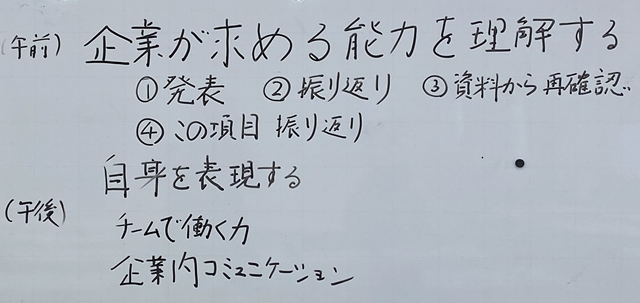 (午前) 企業が求める能力を理解する
①発表 ②振り返り ③資料から再確認
④この項目 振り返り
自身を表現する
(午後)
チームで働く力
企業内コミュニケーション